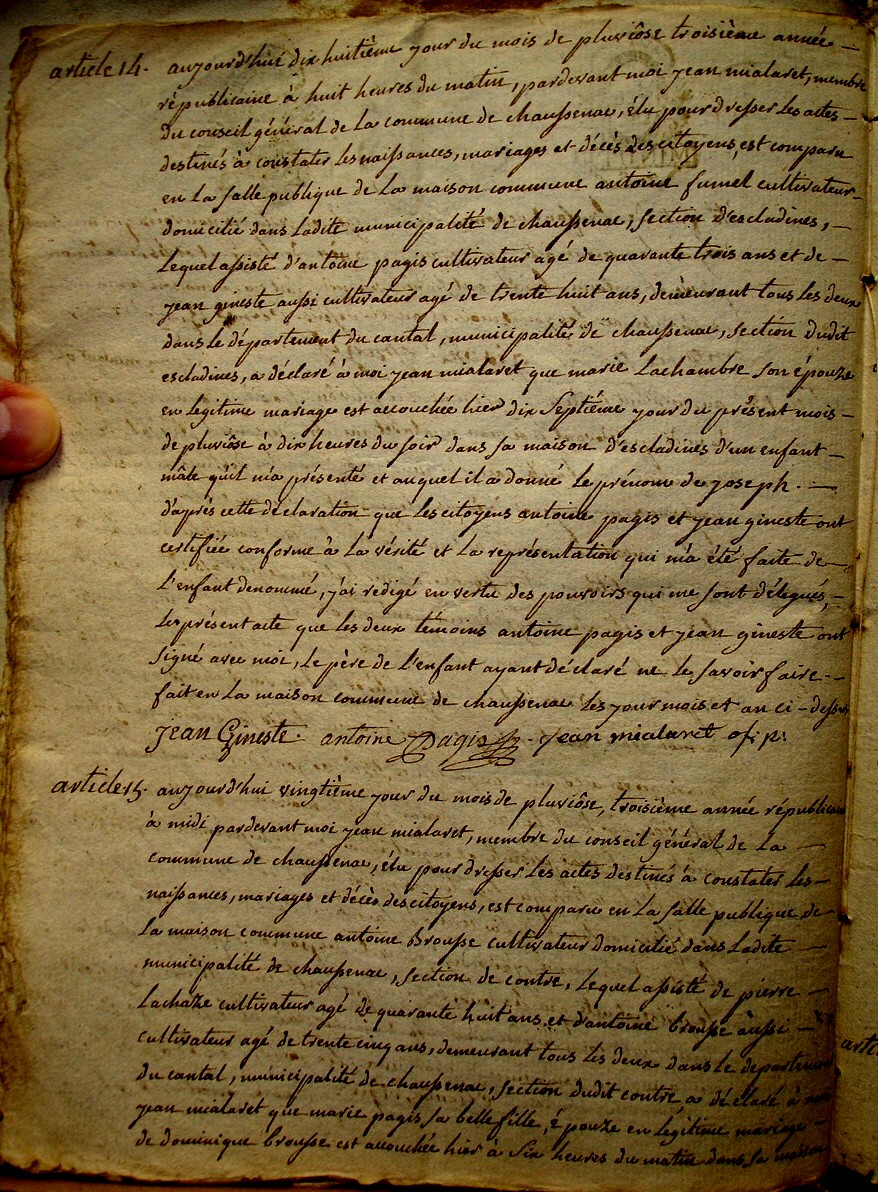 article 14. aujourd'hui dix huitième jour du mois de pluviôse troisième année
républicaine à huit heures du matin, pardevant moi jean mialaret, membre
du conseil général de la commune de chaussenac, élu pour dresser les actes
destinés à constater les naissances, mariages et décès des citoyens, est comparu
en la salle publique de la maison commune antoine fumel cultivateur
domicilié dans ladite municipalité de chaussenac, section d'escladines,
lequel assisté d'antoine pagis cultivateur agé de quarante trois ans et de
jean gineste aussi cultivateur agé de trente huit ans, demeurant tous les deux
dans le département du cantal, municipalité de chaussenac, section dudit
escladines, a déclaré à moi jean mialaret que marie lachambre son épouze
en légitime mariage est accouchée hier dix septième jour du présent mois
de pluviôse à dix heures du soir dans sa maison d'escladines d'un enfant
mâle qu'il m'a présenté et auquel il a donné le prénom de joseph.
d'après cette déclaration que les citoyens antoine pagis et jean gineste ont
certifiée conforme à la vérité et la représentation qui m'a été faite de
l'enfant denommé, j'ai redigé en vertu des pouvoirs qui me sont délegués,
le présent acte que les deux témoins antoine pagis et jean gineste ont
signé avec moi, le père de l'enfant ayant déclaré ne le savoir faire.
fait en la maison commune de chaussenac les jour mois et an ci-dessus
Jean Gineste. antoine Pagis. Jean mialaret of. p.
article 15. aujourd'hui vingtième jour du mois de pluviôse, troisième année républicaine
à midi pardevant moi jean mialaret, membre du conseil général de la
commune de chaussenac, élu pour dresser les actes destinés à constater les
naissances, mariages et décès des citoyens, est comparu en la salle publique de
la maison commune antoine Brousse cultivateur domicilié dans ladite
municipalité de chaussenac, section de contre, lequel assisté de pierre
lachaze cultivateur agé de quarante huit ans et d'antoine brousse aussi
cultivateur agé de trente cinq ans, demeurant tous les deux dans le departement
du cantal, municipalité de chaussenac, section dudit contre a déclaré à moi
jean mialaret que marie pagis sa belle fille, épouze en légitime mariage
de dominique brousse est accouchée hier à six heures du matin dans sa maison